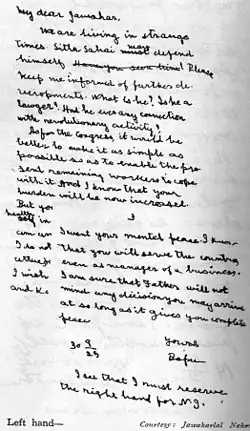 My dear Jawahar,
We are living in strange
times. Sitla Sahai may defend
himself. Please
keep me informed of further de-
velopments. What is he? Is he a
lawyer? Had he ever any connection
with revolutionary activity?
As for the Congress, it would be
better to make it as simple as
possible so as to enable the pre-
sent remaining workers to cope
with it. And I know that your
burden will be now increased.
But your
health in
any
I do not
I wish
and
I want your mental peace. I know
that you will serve the country
even as manager of a business.
I am sure that Father will not
mind any decision you may arrive
at so long as it gives you complete
peace
30 9/25 Yours
Bapu
I see that I must reserve
the right hand for N.J.
Left hand—
Courtesy: Jawaharlal Nehr